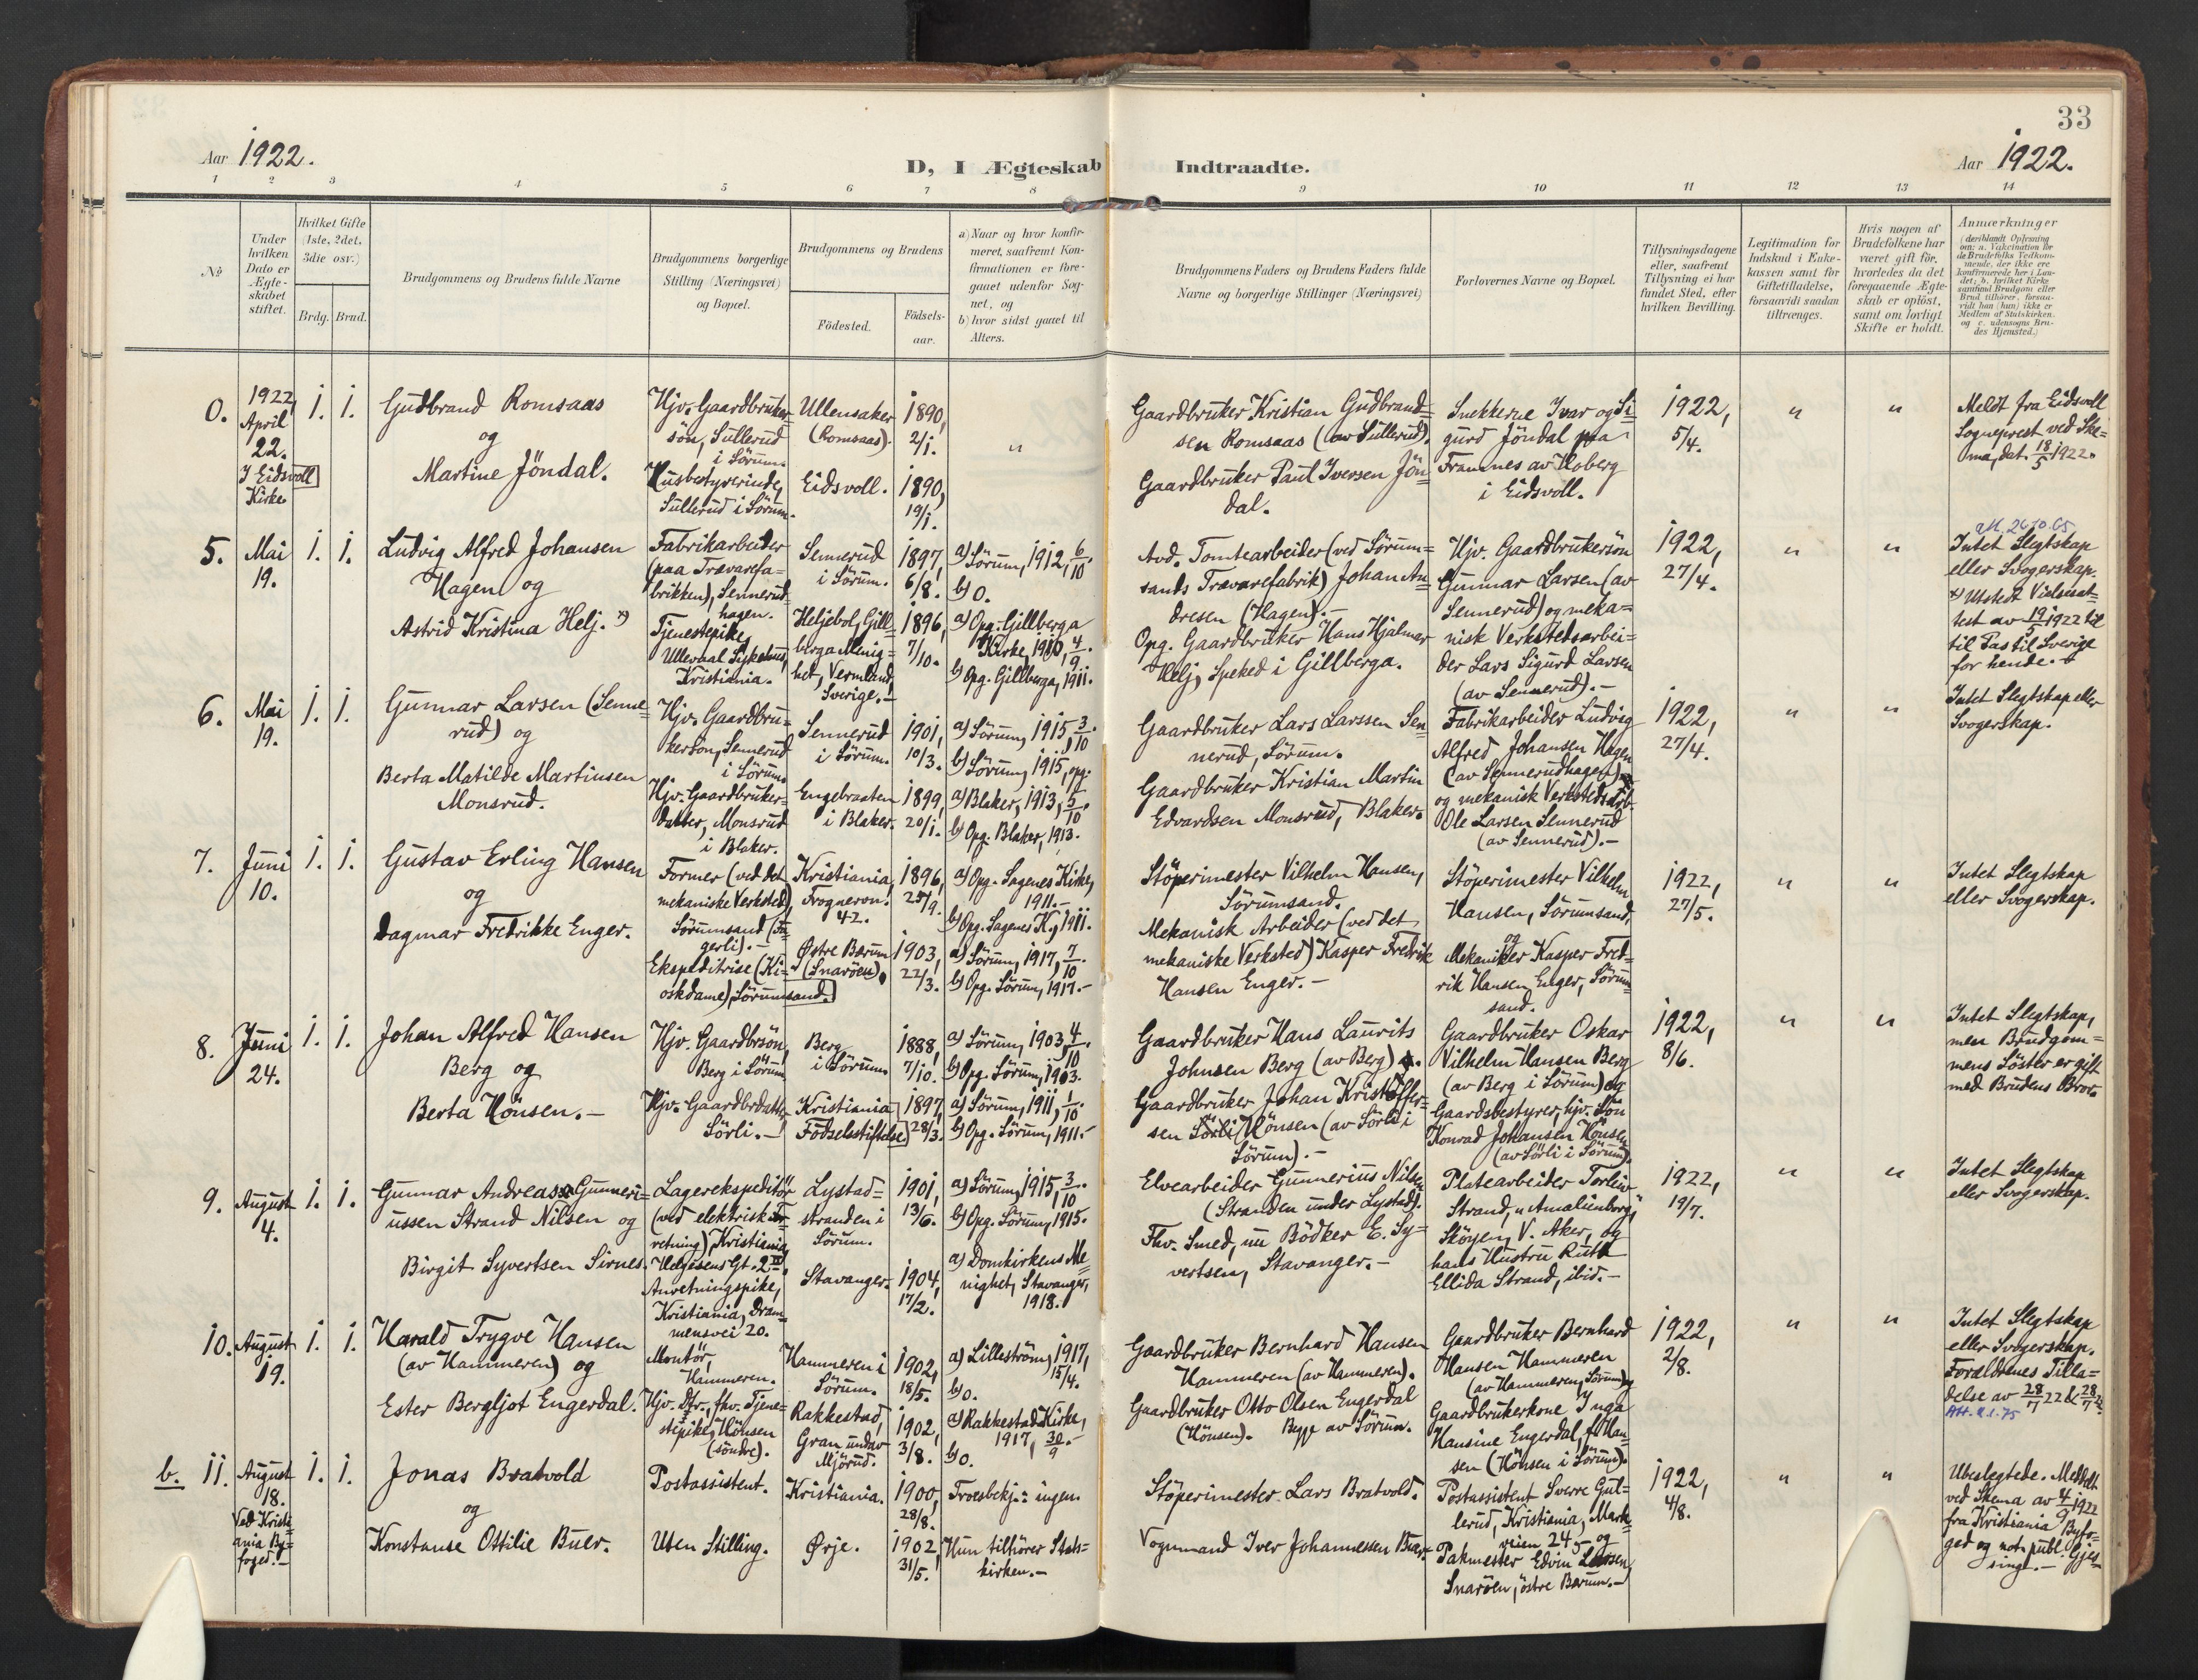 33
Aar 1922.
D, I Ægteskab Indtraadte.
Aar 1922.
1 2 3 4 5 6 7 8 9 10 11 12 13 14
No
Under
hvilken
Dato er
Ægte-
skabet
stiftet.
Hvilket Gifte
(1ste, 2det,
3die osv.)
Brdg. Brud.
Brudgommens og Brudens fulde Navne
Brudgommens borgerlige
Stilling (Næringsvei)
og Bopæl.
Brudgommens og Brudens
Födested.
Födsels-
aar.
a) Naar og hvor konfir-
meret, saafremt Kon-
firmationen er fore-
gaaet udenfor Sog-
net, og
b) hvor sidst gaaet til
Alters.
Brudgommens Faders og Brudens Faders fulde
Navne og borgerlige Stillinger (Næringsvei)
Forlovernes Navne og Bopæl.
Tillysningsdagene
eller, saafremt
Tillysning ei har
fundet Sted, efter
hvilken Bevilling.
Legitimation for
Indskud i Enke-
kassen samt for
Giftetilladelse,
forsaavidt saadan
tiltrænges.
Hvis nogen af
Brudefolkene har
været gift för,
hvorledes da det
foregaaende Ægte-
skab er oplöst,
samt om lovligt
Skifte er holdt.
Anmærkninger
(deriblandt Oplysning
om: a. Vakcination for
de Brudefolks Vedkom-
mende, der ikke ere
konfirmerede her i Lan-
det; b. hvilket Kirke
samfund Brudgom eller
Brud tilhörer, forsaa-
vidt han (hun) ikke er
Medlem af Statskirken,
og c. udensogns Bru-
des Hjemsted.)
0.
1922
April
22.
I Eidsvoll
Kirke
1. 1.
Gudbrand Romsaas
og
Martine Jöndal.
Hjv. Gaardbruker=
sön, Sullerud
i Sörum.
Husbestyrerinde,
Sullerud i Sörum.
Ullensaker
(Romsaas).
Eidsvoll.
1890,
2/1.
1890,
19/1.
"
Gaardbruker Kristian Gudbrand=
sen Romsaas (av Sullerud).
Gaardbruker Paul Iversen Jön=
dal.
Snekkerne Ivar og Si
gurd Jöndal paa
Framnes av Hoberg
i Eidsvoll.
1922,
5/4.
" "
Meldt fra Eidsvoll
Sogneprest ved Ske=
ma, dat. 18/5 1922.
5.
Mai
19.
1. 1.
Ludvig Alfred Johansen
Hagen og
Astrid Kristina Helj. x)
Fabrikarbeider
(paa Trævarefa=
brikken), Sennerud=
hagen.
Tjenestepike,
Ullevaal Sykehus,
Kristiania.
Sennerud
i Sörum.
Heljebol, Gill=
berga Menig=
het, Vermland,
Sverige.-
1897,
6/8.
1896,
7/10.
a) Sörum, 1912, 6/10
b) 0.
a) Opg. Gillberga
Kirke, 1910, 4/9.
b) Opg. Gillberga, 1911.
Avd. Tomtearbeider (ved Sörum=
sands Trævarefabrik) Johan An=
dresen (Hagen).-
Opg. Gaardbruker Hans Hjalmar
Helj, Speked i Gillberga.
Hjv. Gaardbrukersön
Gunnar Larsen (av
Sennerud) og meka=
nisk Verkstedsarbei=
der Lars Sigurd Larsen
(av Sennerud).-
1922,
27/4.
" "
att. 26.10.65
Intet Slegtskap
eller Svogerskap.
x) Utstedt Vielsesat=
test av 19/5 1922 til
til Pas til Sverige
for hende.
6.
Mai
19.
1. 1.
Gunnar Larsen (Senne=
rud) og
Berta Matilde Martinsen
Monsrud.
Hjv. Gaardbru=
kersön, Sennerud
i Sörum.
Hjv. Gaardbruker=
datter, Monsrud
i Blaker.
Sennerud
i Sörum.
Engebraaten
i Blaker.
1901,
10/3.
1899,
20/1.
a) Sörum, 1915, 3/10.
b) Sörum, 1915, opg.
a) Blaker, 1913, 5/10.
b) Opg. Blaker, 1913.
Gaardbruker Lars Larssen Sen
nerud, Sörum.
Gaardbruker Kristian Martin
Edvardsen Monsrud, Blaker.
Fabrikarbeider Ludvig
Alfred Johansen Hagen
(av Sennerudhagen)
og mekanisk Verkstedsarb.
Ole Larsen Sennerud
(av Sennerud).-
1922,
27/4.
" "
Intet Slegtskap eller
Svogerskap.
7.
Juni
10.
1. 1.
Gustav Erling Hansen
og
Dagmar Fredrikke Enger.
Former (ved det
mekaniske Verksted),
Sörumsand (Fa=
gerli).-
Ekspeditrise (Ki=
oskdame), Sörumsand.
Kristiania,
Frogneron.
42.
Östre Bærum
(Snaröen).
1896,
25/9.
1903,
22/3.
a) Opg. Sagenes Kirke,
1911.-
b) Opg. Sagenes K., 1911.
a) Sörum, 1917, 7/10.
b) Opg. Sörum, 1917.-
Stöperimester Vilhelm Hansen,
Sörumsand.
Mekanisk Arbeider (ved det
mekaniske Verksted) Kasper Fredrik
Hansen Enger.-
Stöperimester Vilhelm
Hansen, Sörumsand,
og
Mekaniker Kasper Fred=
rik Hansen Enger, Sörum=
sand.
1922,
27/5.
" "
Intet Slegtskap
eller Svogerskap.
8.
Juni
24.
1. 1.
Johan Alfred Hansen
Berg og
Berta Hönsen.-
Hjv. Gaardbrsön,
Berg i Sörum.
Hjv. Gaardbrdatter
Sörli.-
Berg
i Sörum.
Kristiania
Födselsstiftelse
1888,
7/10.
1897,
28/3.
a) Sörum, 1903, 4/10.
b) Opg. Sörum, 1903.
a) Sörum, 1911, 1/10.
b) Opg. Sörum, 1911.-
Gaardbruker Hans Laurits
Johnsen Berg (av Berg).
Gaardbruker Johan Kristoffer=
sen Sörli Hönsen (av Sörli i
Sörum).-
Gaardbruker Oskar
Vilhelm Hansen Berg
(av Berg i Sörum) og
Gaardsbestyrer, hjv. Sön
Konrad Johansen Hönsen
(av Sörli i Sörum).
1922,
8/6.
" "
Intet Slegtskap,
men Brudgom=
mens Söster er gift
med Brudens Bror.
9.
August
4.
1. 1.
Gunnar Andreas Gunneri=
ussen Strand Nilsen og
Birgit Syvertsen Sirnes.
Lagerekspeditör
(ved elektrisk For=
retning), Kristiania,
Helgesens Gt. 2 III,
Anretningspike,
Kristiania, Dram=
mensvei 20.
Lystad=
stranden i
Sörum.
Stavanger.
1901,
13/6.
1904,
17/2.
a) Sörum, 1915, 3/10.
b) Opg. Sörum, 1915.
a) Domkirkens Me
nighet, Stavanger,
1918.
Elvearbeider Gunnerius Nilsen
(Stranden under Lystad).
Fhv. Smed, nu Bödker E. Sy=
vertsen, Stavanger.-
Platearbeider Torleiv
Strand, "Amalienborg",
Sköyen, V. Aker, og
hans Hustru Ruth
Ellida Strand, ibid.-
1922,
19/7.
" "
Intet Slegtskap
eller Svogerskap.
10.
August
19.
1. 1.
Harald Trygve Hansen
(av Hammeren) og
Ester Bergljot Engerdal.
Montör,
Hammeren.
Hjv. Dtr., fhv. Tjene=
stepike, Hönsen
(söndre).
Hammeren i
Sörum.
Rakkestad,
Gran under
Mjörud.
1902,
18/5.
1902,
3/8.
a) Lilleström, 1917,
15/4.
b) 0.
a) Rakkestad Kirke,
1917, 30/9.-
b) 0.
Gaardbruker Bernhard Hansen
Hammeren (av Hammeren).
Gaardbruker Otto Olsen Engerdal
(Hönsen). Bygs. av Sörum.
Gaardbruker Bernhard
Hansen Hammeren
(av Hammeren, Sörum) og
Gaardbrukerkone Inga
Hansine Engerdal, f. Han=
sen (Hönsen i Sörum).
1922,
2/8.
" "
Intet Slegtskap
eller Svogerskap.
Forældrenes Tilla=
delse av 28/7 22 & 28/7 22.
Att. 2.1.75
b. 11.
August
18.
Ved Kristi
ania By=
foged.-
1. 1.
Jonas Bratvold
og
Konstanse Ottilie Buer.
Postassistent.
Uten Stilling.
Kristiania.
Ørje.
1900,
28/8.
1902,
31/5.
Troesbekj.: ingen.
Hun tilhörer Stats=
kirken.-
Stöperimester Lars Bratvold.
Vognmand Iver Johannessen Buer.
Postassistent Sverre Gul=
lerud, Kristiania, Mark=
veien 24 og
Pakmester Edvin Larsen,
Snaröen, östre Bærum.-
1922,
4/8.
" "
Ubeslegtede. Meddelt
ved Skema av 4/9 1922
fra Kristiania Byfo=
ged og not. publ. Gjes=
sing.-